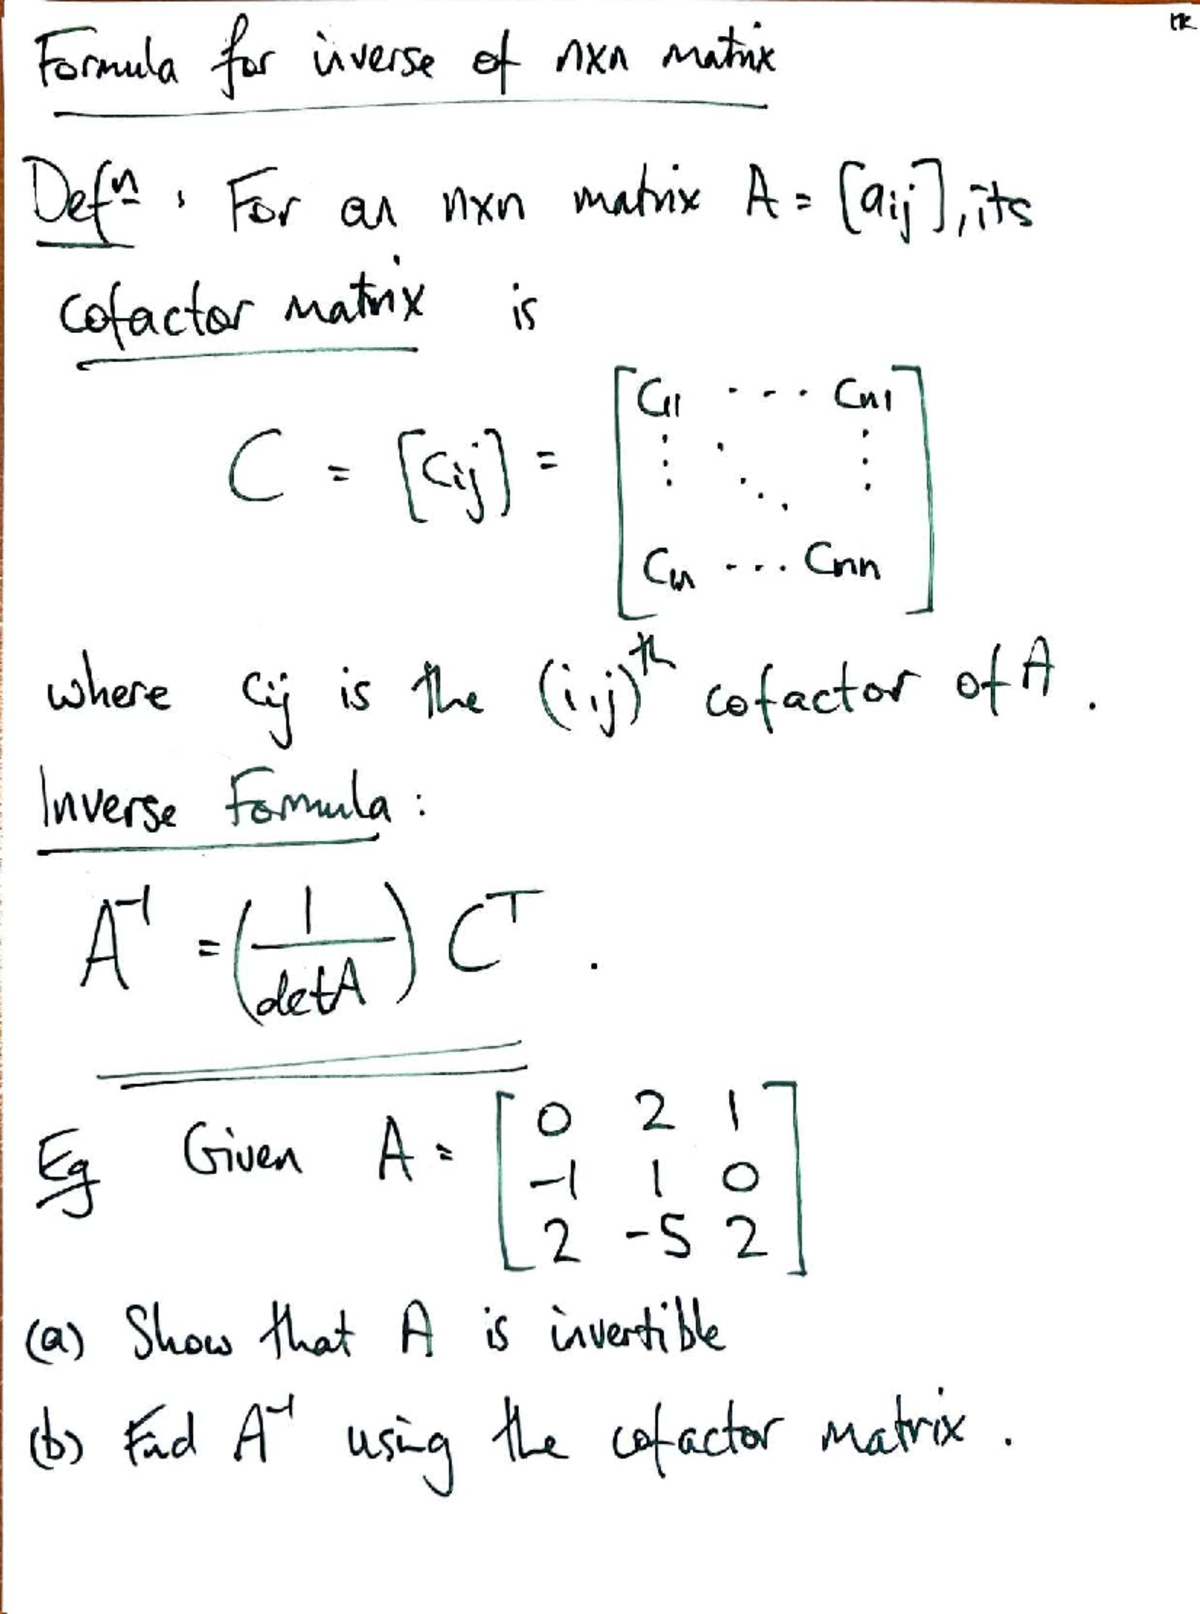 HK
Formula for inverse of nxn matrix
Defn: For an nxn matrix A = [aij], its
cofactor matrix is
C = [Cij] = [C11 ... Cn1
⋮ ⋱ ⋮
C1n ... Cnn]
where Cij is the (i,j)th cofactor of A.
Inverse Formula:
A⁻¹ = (1/detA) Cᵀ.
Eg Given A = [0 2 1
-1 1 0
2 -5 2]
(a) Show that A is invertible
(b) Find A⁻¹ using the cofactor matrix.